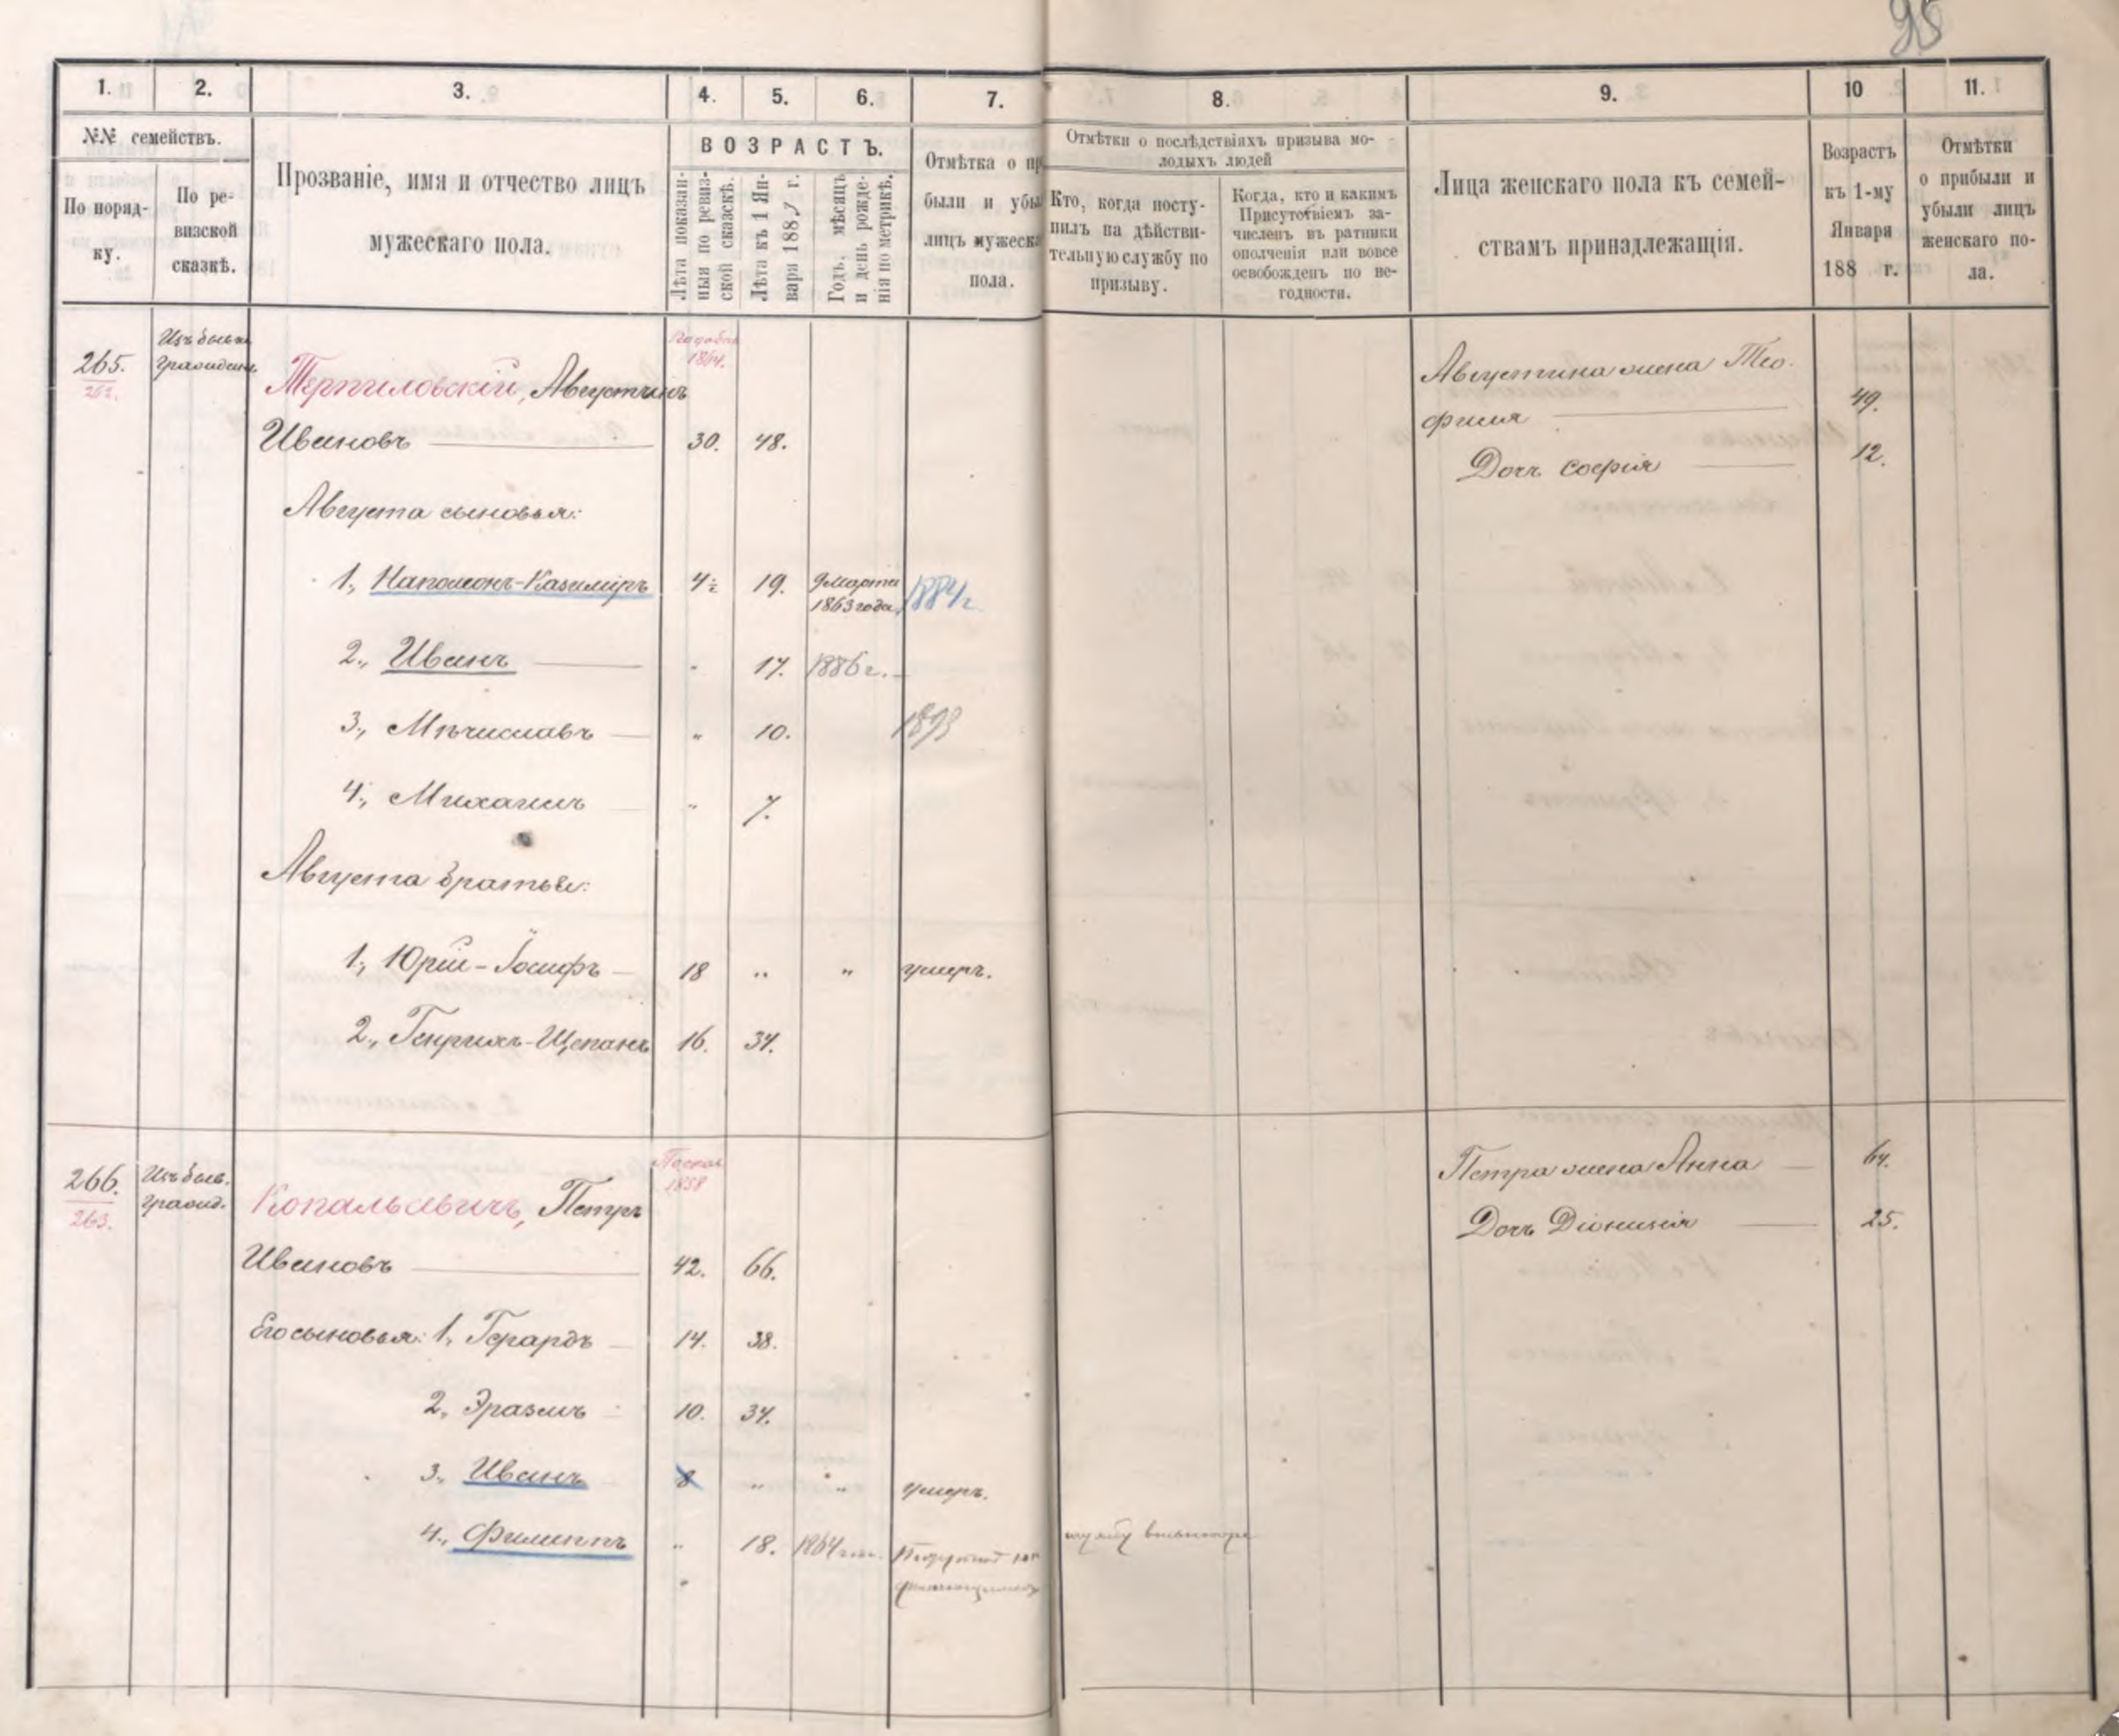 95
1. 2. 3. 4. 5. 6. 7. 8. 9. 10 11.
№№ семействъ.
По поряд-
ку.
По ре-
визской
сказкѣ.
Прозваніе, имя и отчество лицъ
мужескаго пола.
ВОЗРАСТЪ.
Лѣта показан-
ныя по ревиз-
ской сказкѣ.
Лѣта къ 1 Ян-
варя 188 г.
Годъ, мѣсяцъ
и день рожде-
нія по метрикѣ.
Отмѣтка о пр
были и убы
лицъ мужеска
пола.
Отмѣтки о послѣдствіяхъ призыва мо-
лодыхъ людей
Кто, когда посту-
пилъ на дѣйстви-
тельную службу по
призыву.
Когда, кто и какимъ
Присутствіемъ за-
численъ въ ратники
ополченія или вовсе
освобожденъ по не-
годности.
Лица женскаго пола къ семей-
ствамъ принадлежащія.
Возрастъ
къ 1-му
Января
188 г.
Отмѣтки
о прибыли и
убыли лицъ
женскаго по-
ла.
265. Изъ бывш.
262. граждан.
1864.
Терпиловскій, Августинъ
Ивановъ 30. 48.
Августина жена Тео-
филя 49.
Дочь Софія 12.
Августа сыновья:
1, Наполеонъ-Казиміръ 4½ 19. 9 Марта
1863 года. 1884 г.
2, Иванъ 17. 1886 г.
3, Мѣчиславъ " 10. 1893
4, Михаилъ " 7.
Августа братья:
1, Юрій-Іосифъ 18 " " умеръ.
2, Генрихъ-Щепанъ 16. 34.
266. Изъ быв.
263. гражд.
1858
Копальевичъ, Петръ
Ивановъ 42. 66.
Петра жена Анна 64.
Дочь Діонизія 25.
Его сыновья: 1, Герардъ 14. 38.
2, Эразмъ 10. 34.
3, Иванъ 8 " " умеръ.
4, Филиппъ " 18. 1864